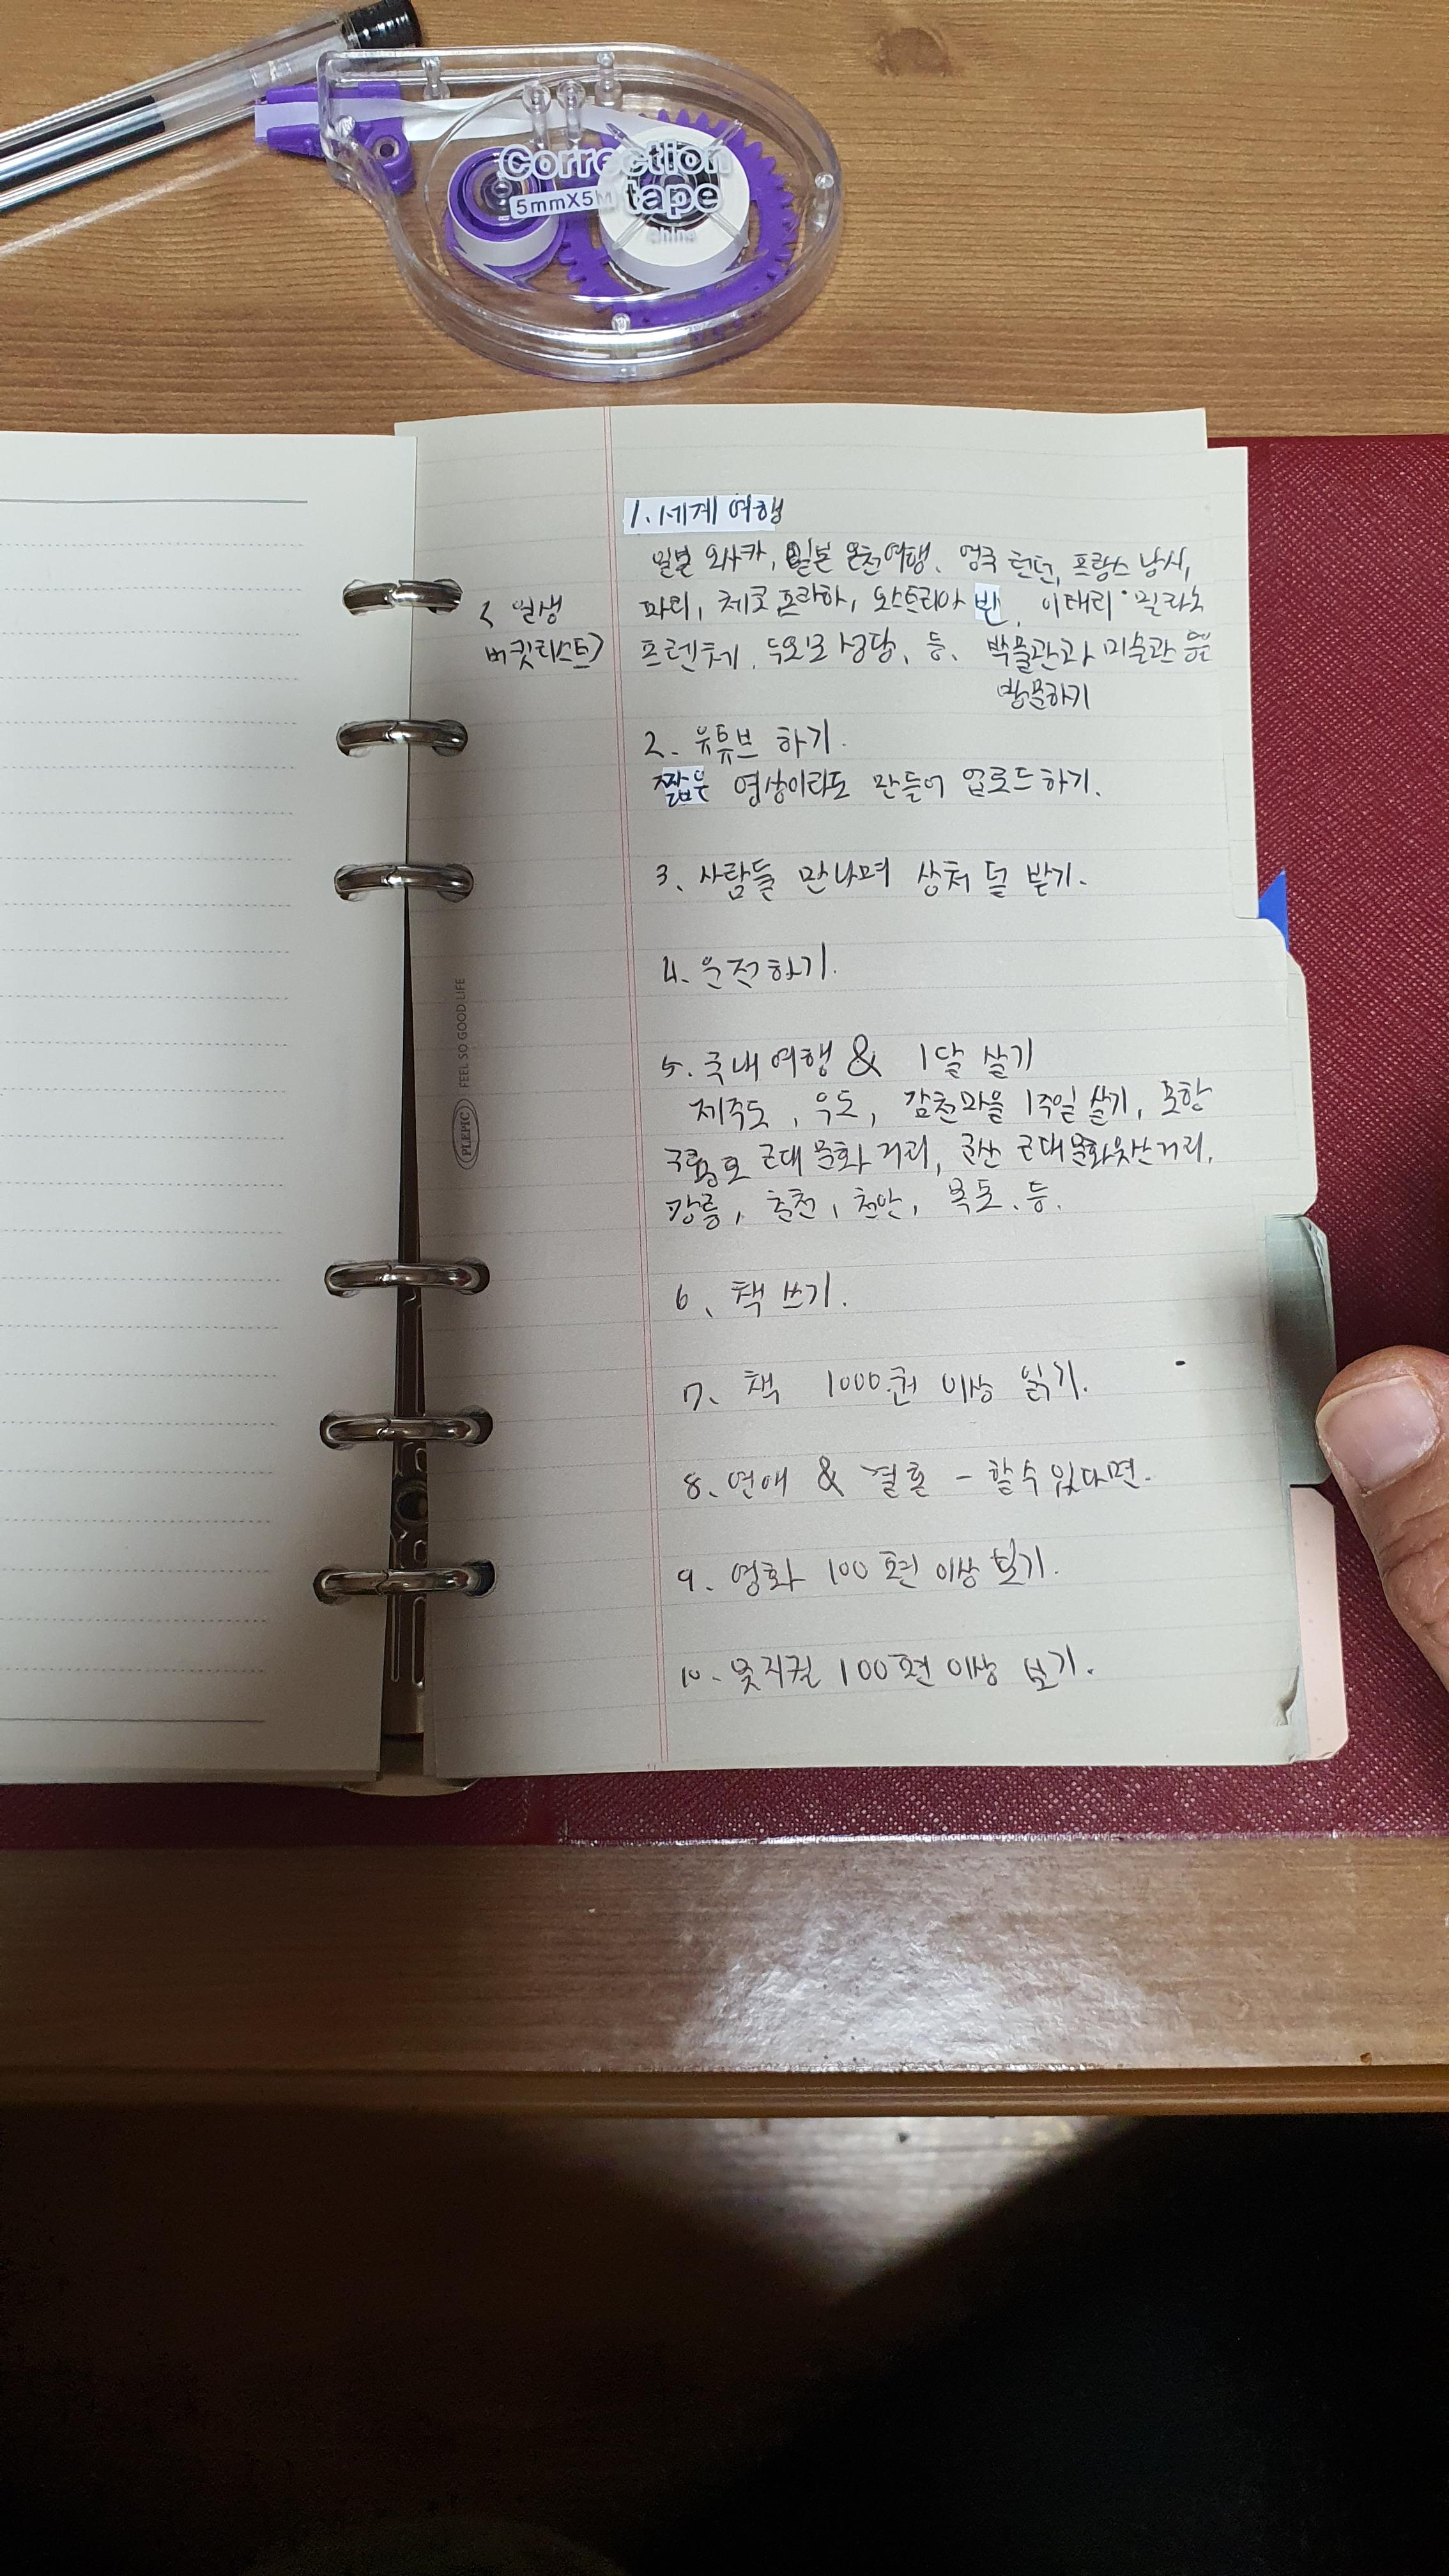 Correction
tape
5mmX5M
China
1. 세계 여행
일본 오사카, 일본 온천여행, 영국 런던, 프랑스 낭시,
< 일생
버킷리스트>
파리, 체코 프라하, 오스트리아 빈, 이태리 밀라노
프렌체, 두오모 성당, 등, 박물관과 미술관
방문하기
2. 유튜브 하기.
짧은 영상이라도 만들어 업로드하기.
3. 사람들 만나며 상처 덜 받기.
4. 운전하기.
5. 국내 여행 & 1달 살기
제주도, 우도, 감천마을 1주일 살기, 포항
근대 문화 거리, 군산 근대문화유산거리,
강릉, 춘천, 천안, 목포, 등.
6. 책 쓰기.
7. 책 1000권 이상 읽기.
8. 연애 & 결혼 - 할 수 있다면.
9. 영화 100편 이상 보기.
10. 뮤지컬 100편 이상 보기.
PLEPIC FEEL SO GOOD LIFE